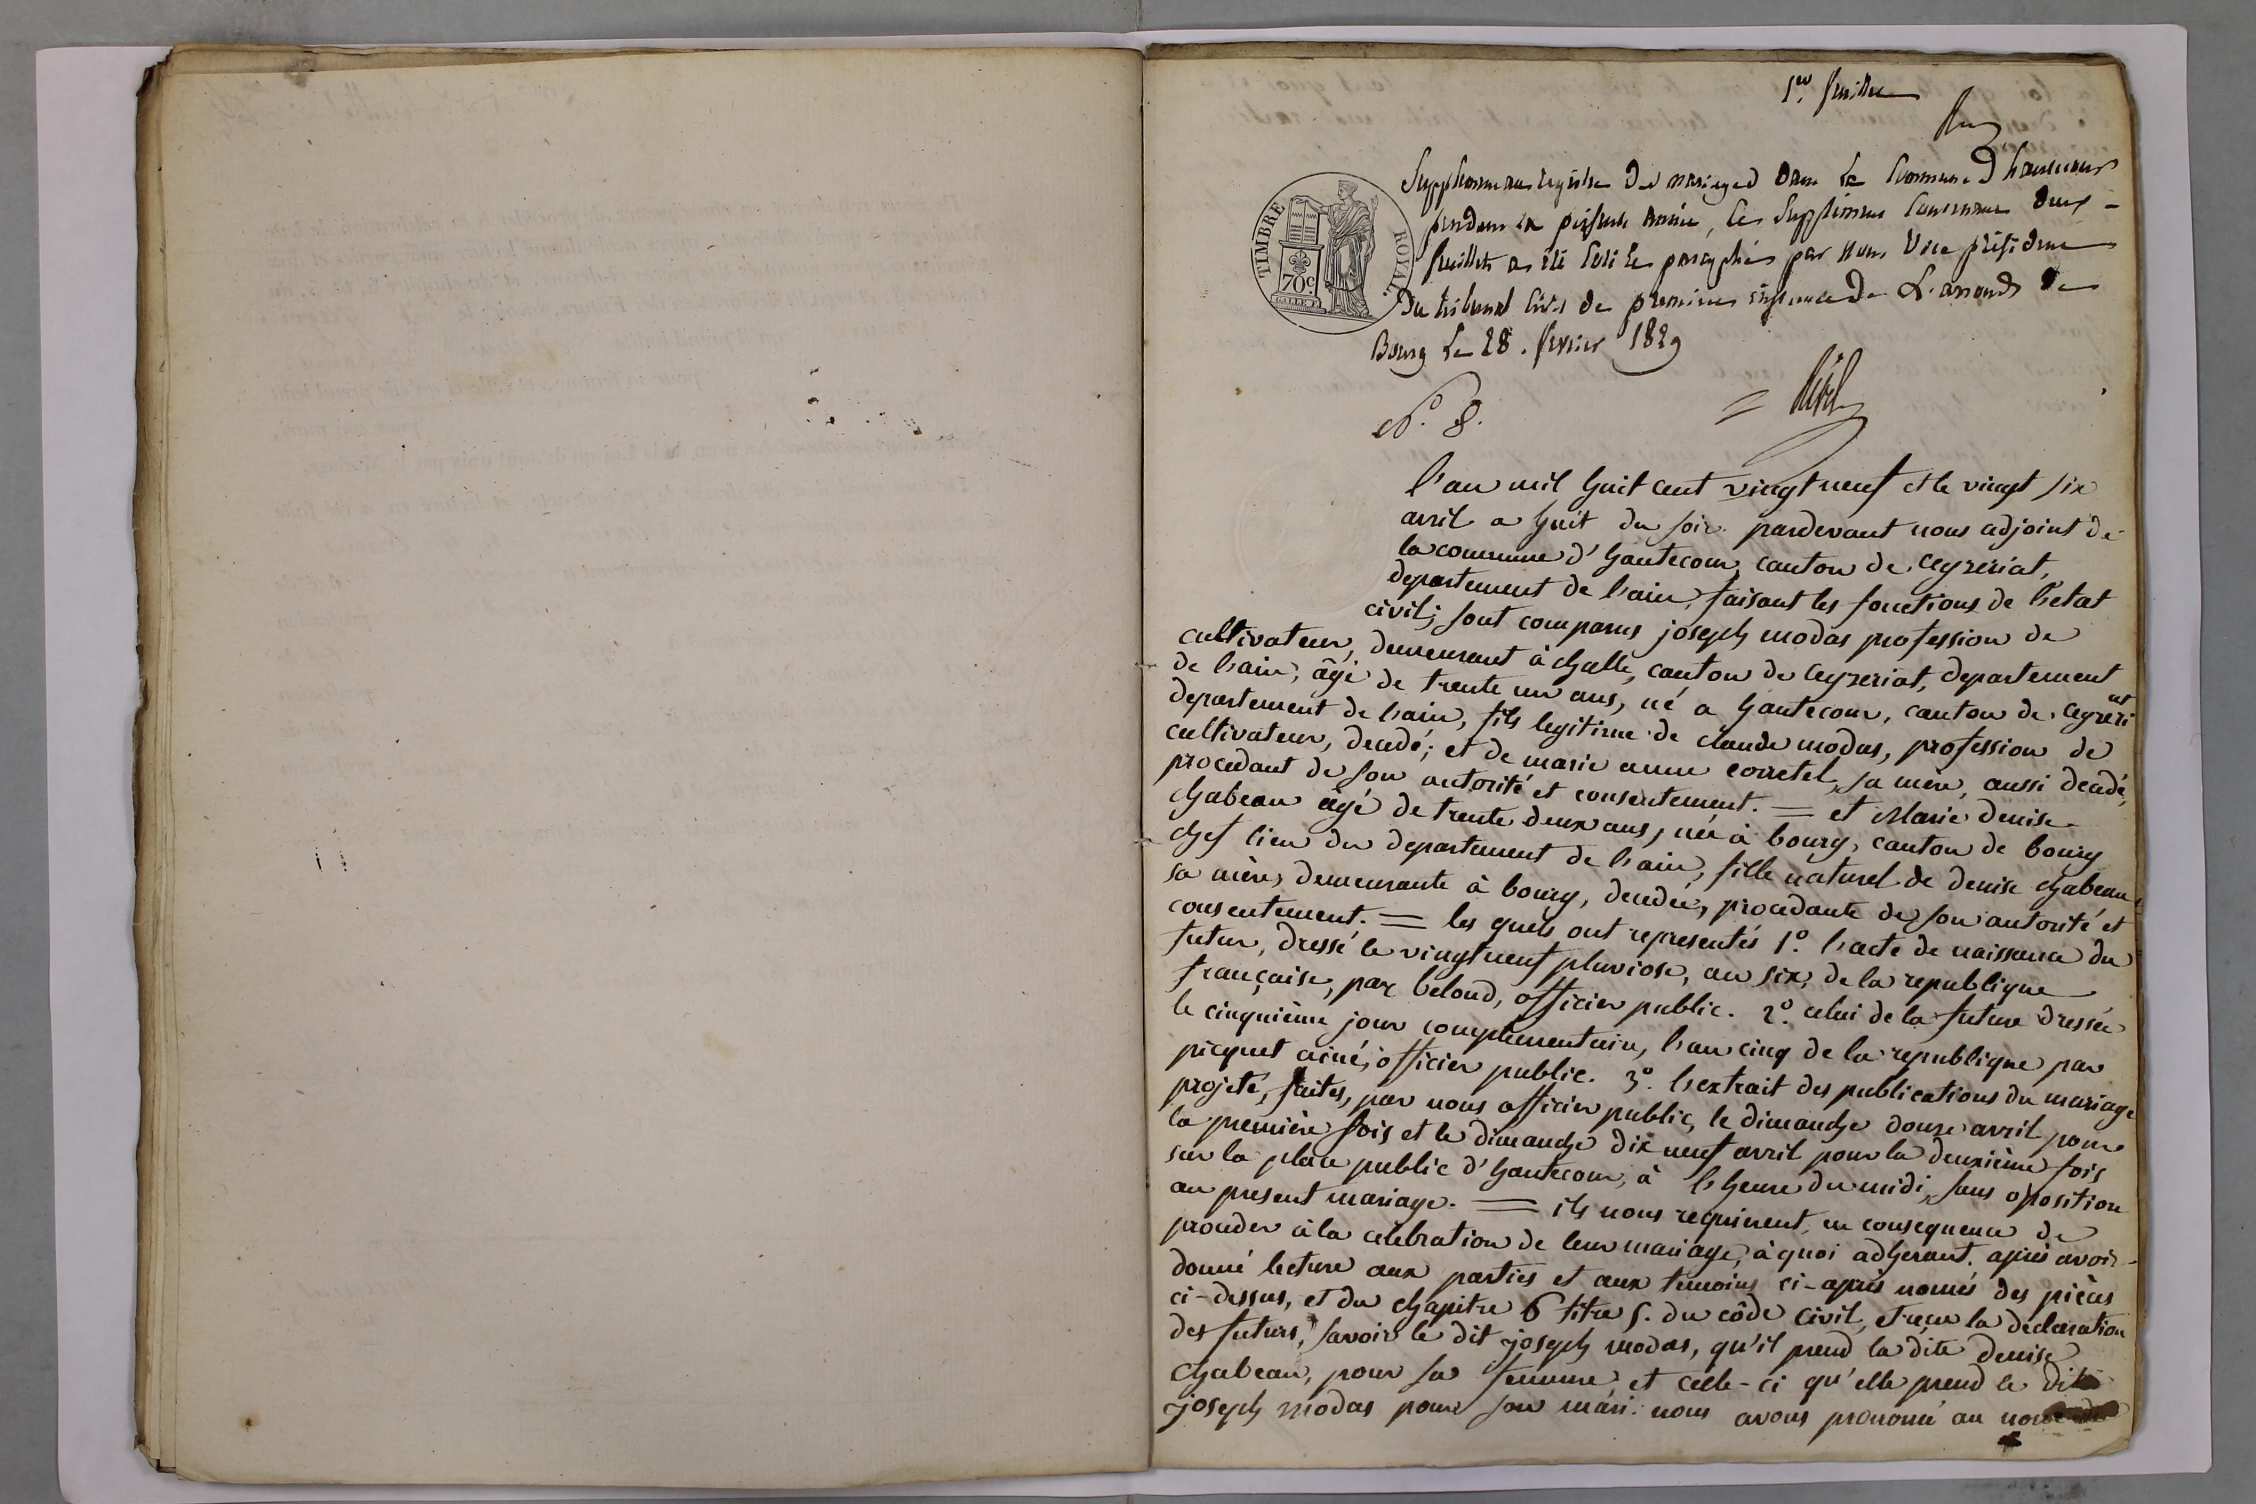 1er feuillet
Supplement au registre des mariages dans la Commune d'hautecour
pendant la présente année, le Supplément Contenant deux
feuillets a été Coté et paraphé par Nous Vice président
Du tribunal Civil de première instance de L'arrond. de
Bourg Le 28. fevrier 1829
TIMBRE ROYAL
70c
N.o 8.
l'an mil huit cent vingt neuf et le vingt six
avril a huit du soir pardevant nous adjoint de
la commune d'hautecour, canton de ceyzeriat,
departement de l'ain, faisant les fonctions de l'etat
civil; sont comparus joseph modas profession de
cultivateur, demeurant à challe, canton de ceyzeriat, departement
de l'ain, âgé de trente un ans, né a hautecour, canton de ceyzeriat
departement de l'ain, fils legitime de claude modas, profession de
cultivateur, decedé; et de marie anne corretel, sa mère, aussi decedé,
procedant de son autorité et consentement. = et Marie denise
chabeau âgé de trente deux ans, née à bourg, canton de bourg
chef lieu du departement de l'ain, fille naturel de denise chabeau
sa mère, demeurante à bourg, decedée, procedante de son autorité et
consentement. = les quels ont representés 1o. l'acte de naissance du
futur, dressé le vingt neuf pluviose, an six, de la republique
française, par beloud, officier public. 2o. celui de la future dressée
le cinquième jour complementaire, l'an cinq de la republique par
picquet ainé, officier public. 3o. l'extrait des publications du mariage
projeté, faites, par nous officier public, le dimanche douze avril pour
la première fois et le dimanche dix neuf avril pour la deuxième fois
sur la place public d'hautecour, à l'heure du midi, sans oposition
au present mariage. = ils nous requirent, en consequence de
proceder à la celebration de leur mariage, à quoi adherant. après avoir
donné lecture aux parties et aux temoins ci-après només des pièces
ci-dessus, et du chapitre 6 titre 5. du côde civil, et reçu la declaration
des futurs, savoir le dit joseph modas, qu'il prend la dite denise
chabeau, pour sa femme, et celle-ci qu'elle prend le dit
joseph modas pour son mari: nous avons prononcé au nom de